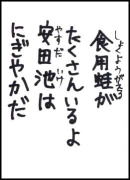 食用蛙が
しょくようがえる
たくさんいるよ
安田池は
やすだいけ
にぎやかだ